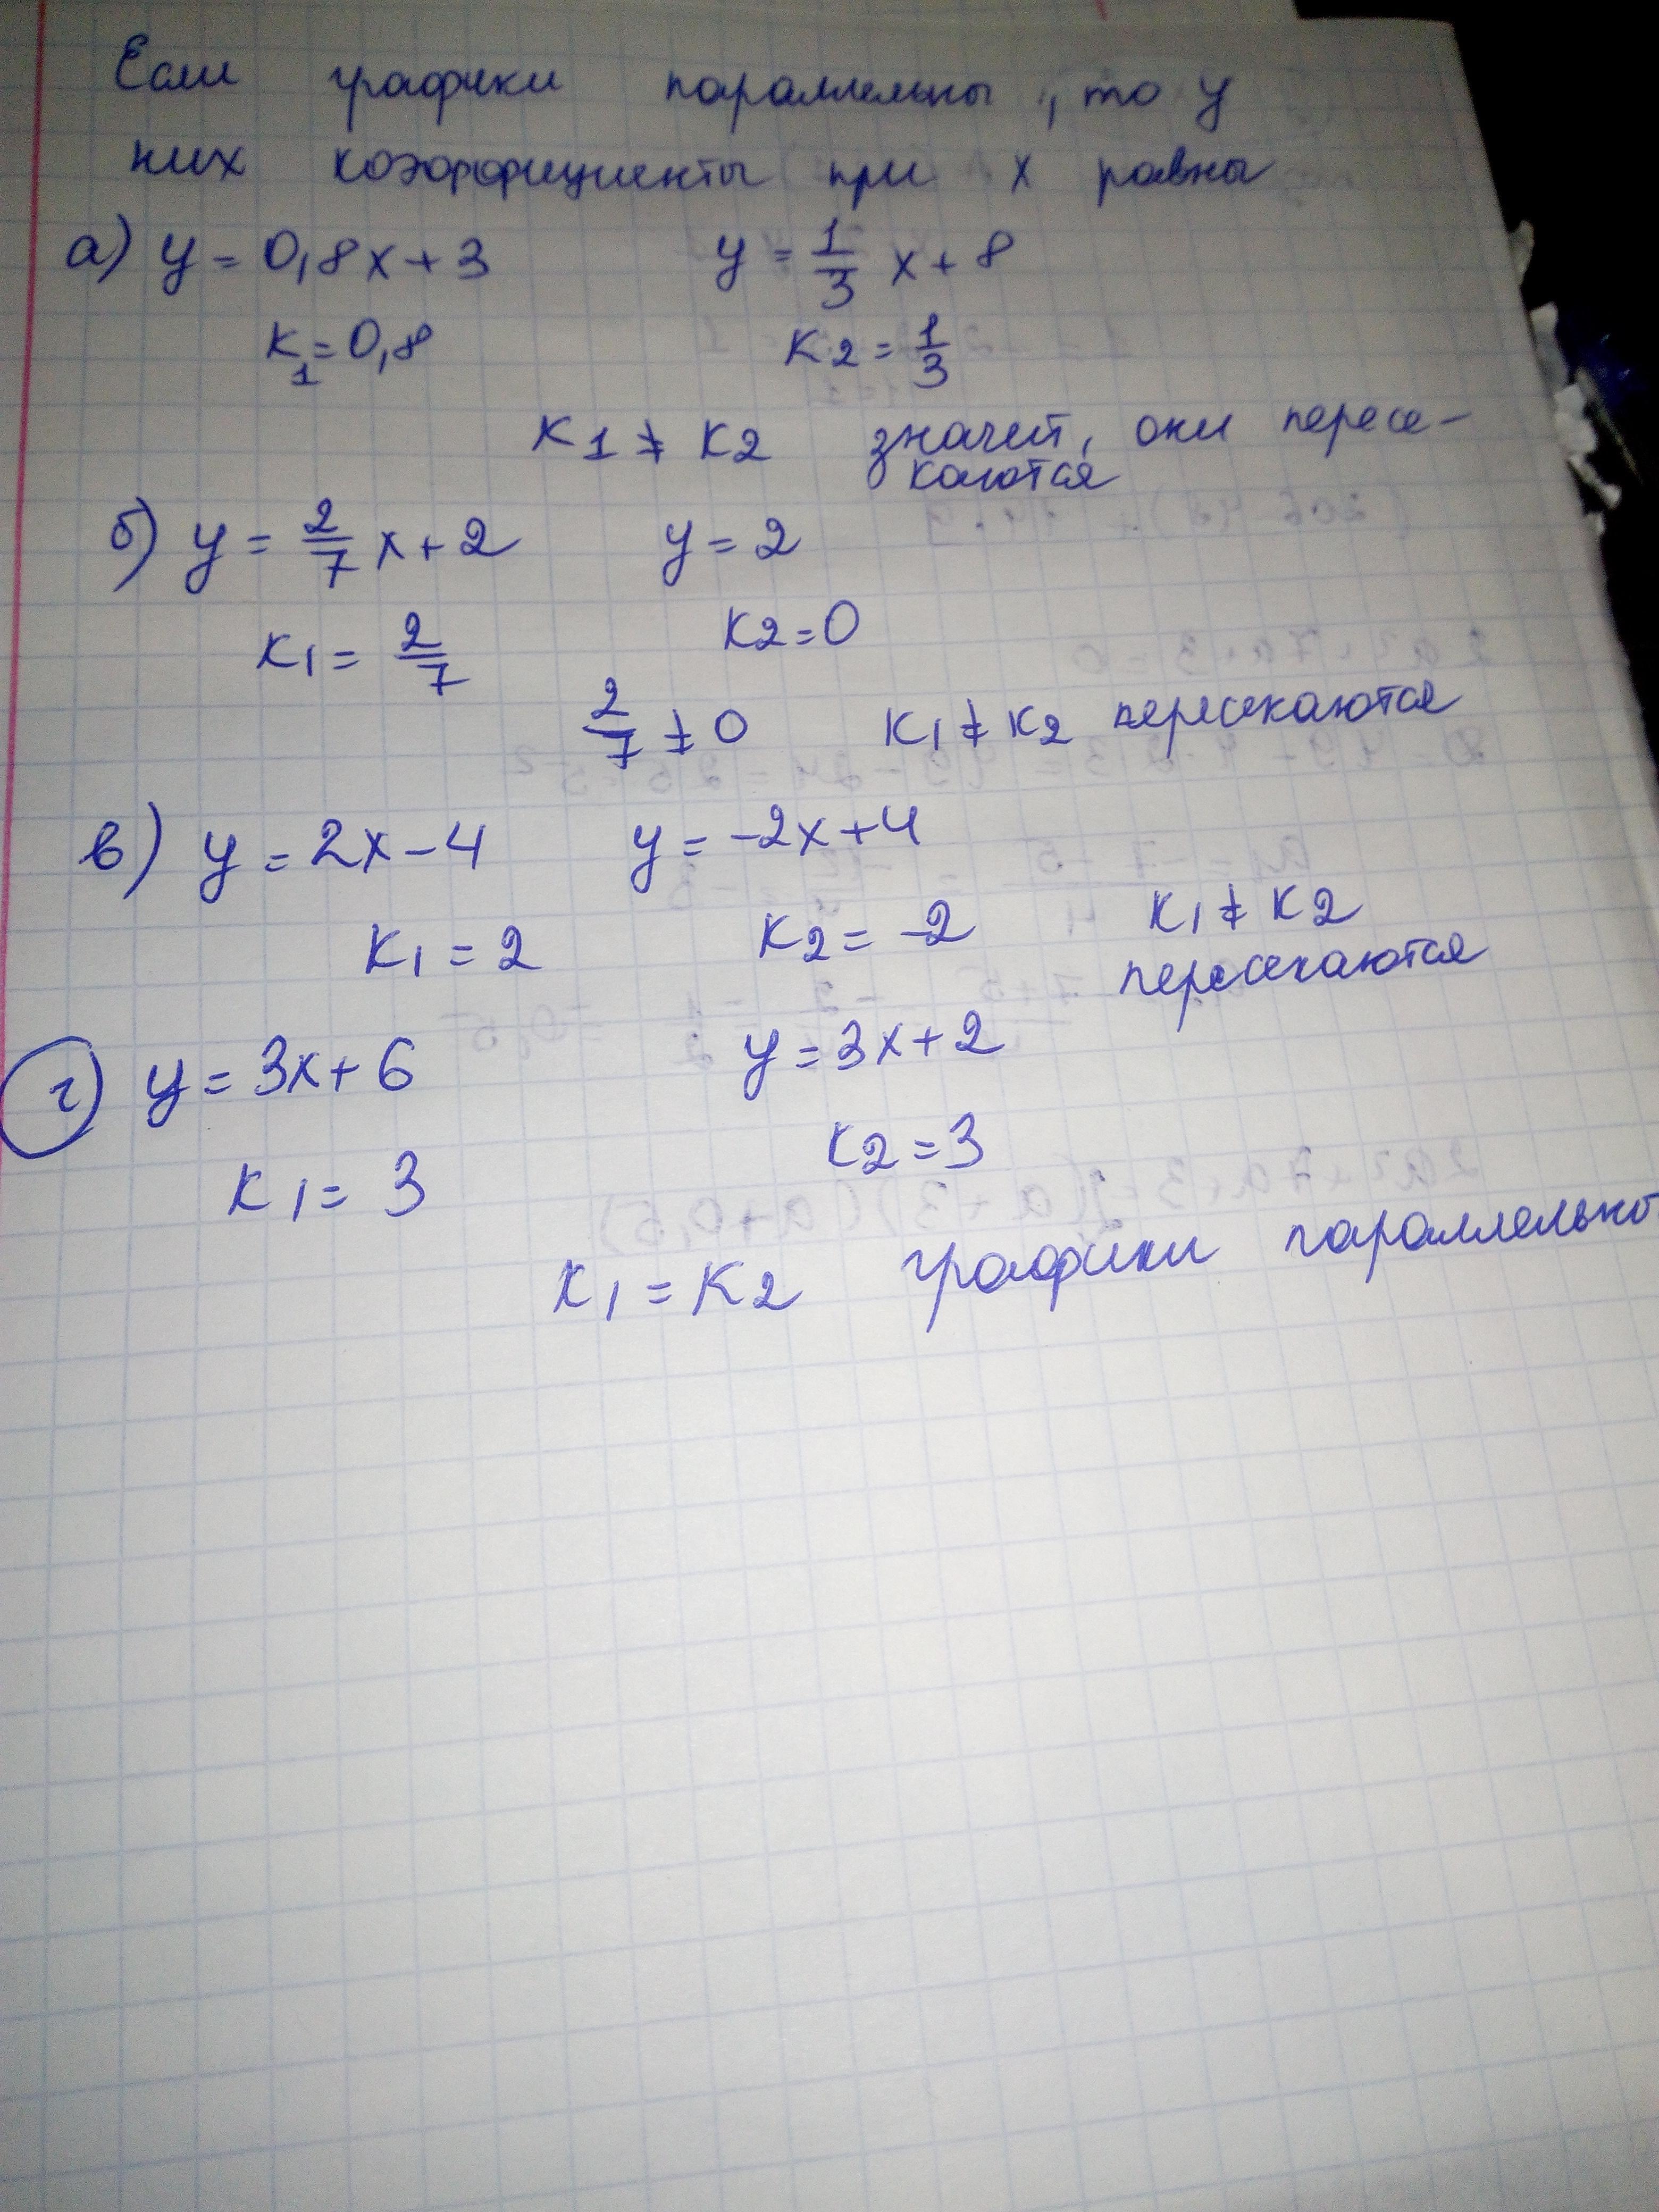 Если графики параллельны, то у
них коэффициенты при x равны
а) y = 0,8x + 3 y = 1/3 x + 8
к1 = 0,8 к2 = 1/3
к1 ≠ к2 значит, они пересе-
каются
б) y = 2/7 x + 2 y = 2
к1 = 2/7 к2 = 0
2/7 ≠ 0 к1 ≠ к2 пересекаются
в) y = 2x - 4 y = -2x + 4
к1 = 2 к2 = -2 к1 ≠ к2
пересекаются
г) y = 3x + 6 y = 3x + 2
к1 = 3 к2 = 3
к1 = к2 графики параллельно